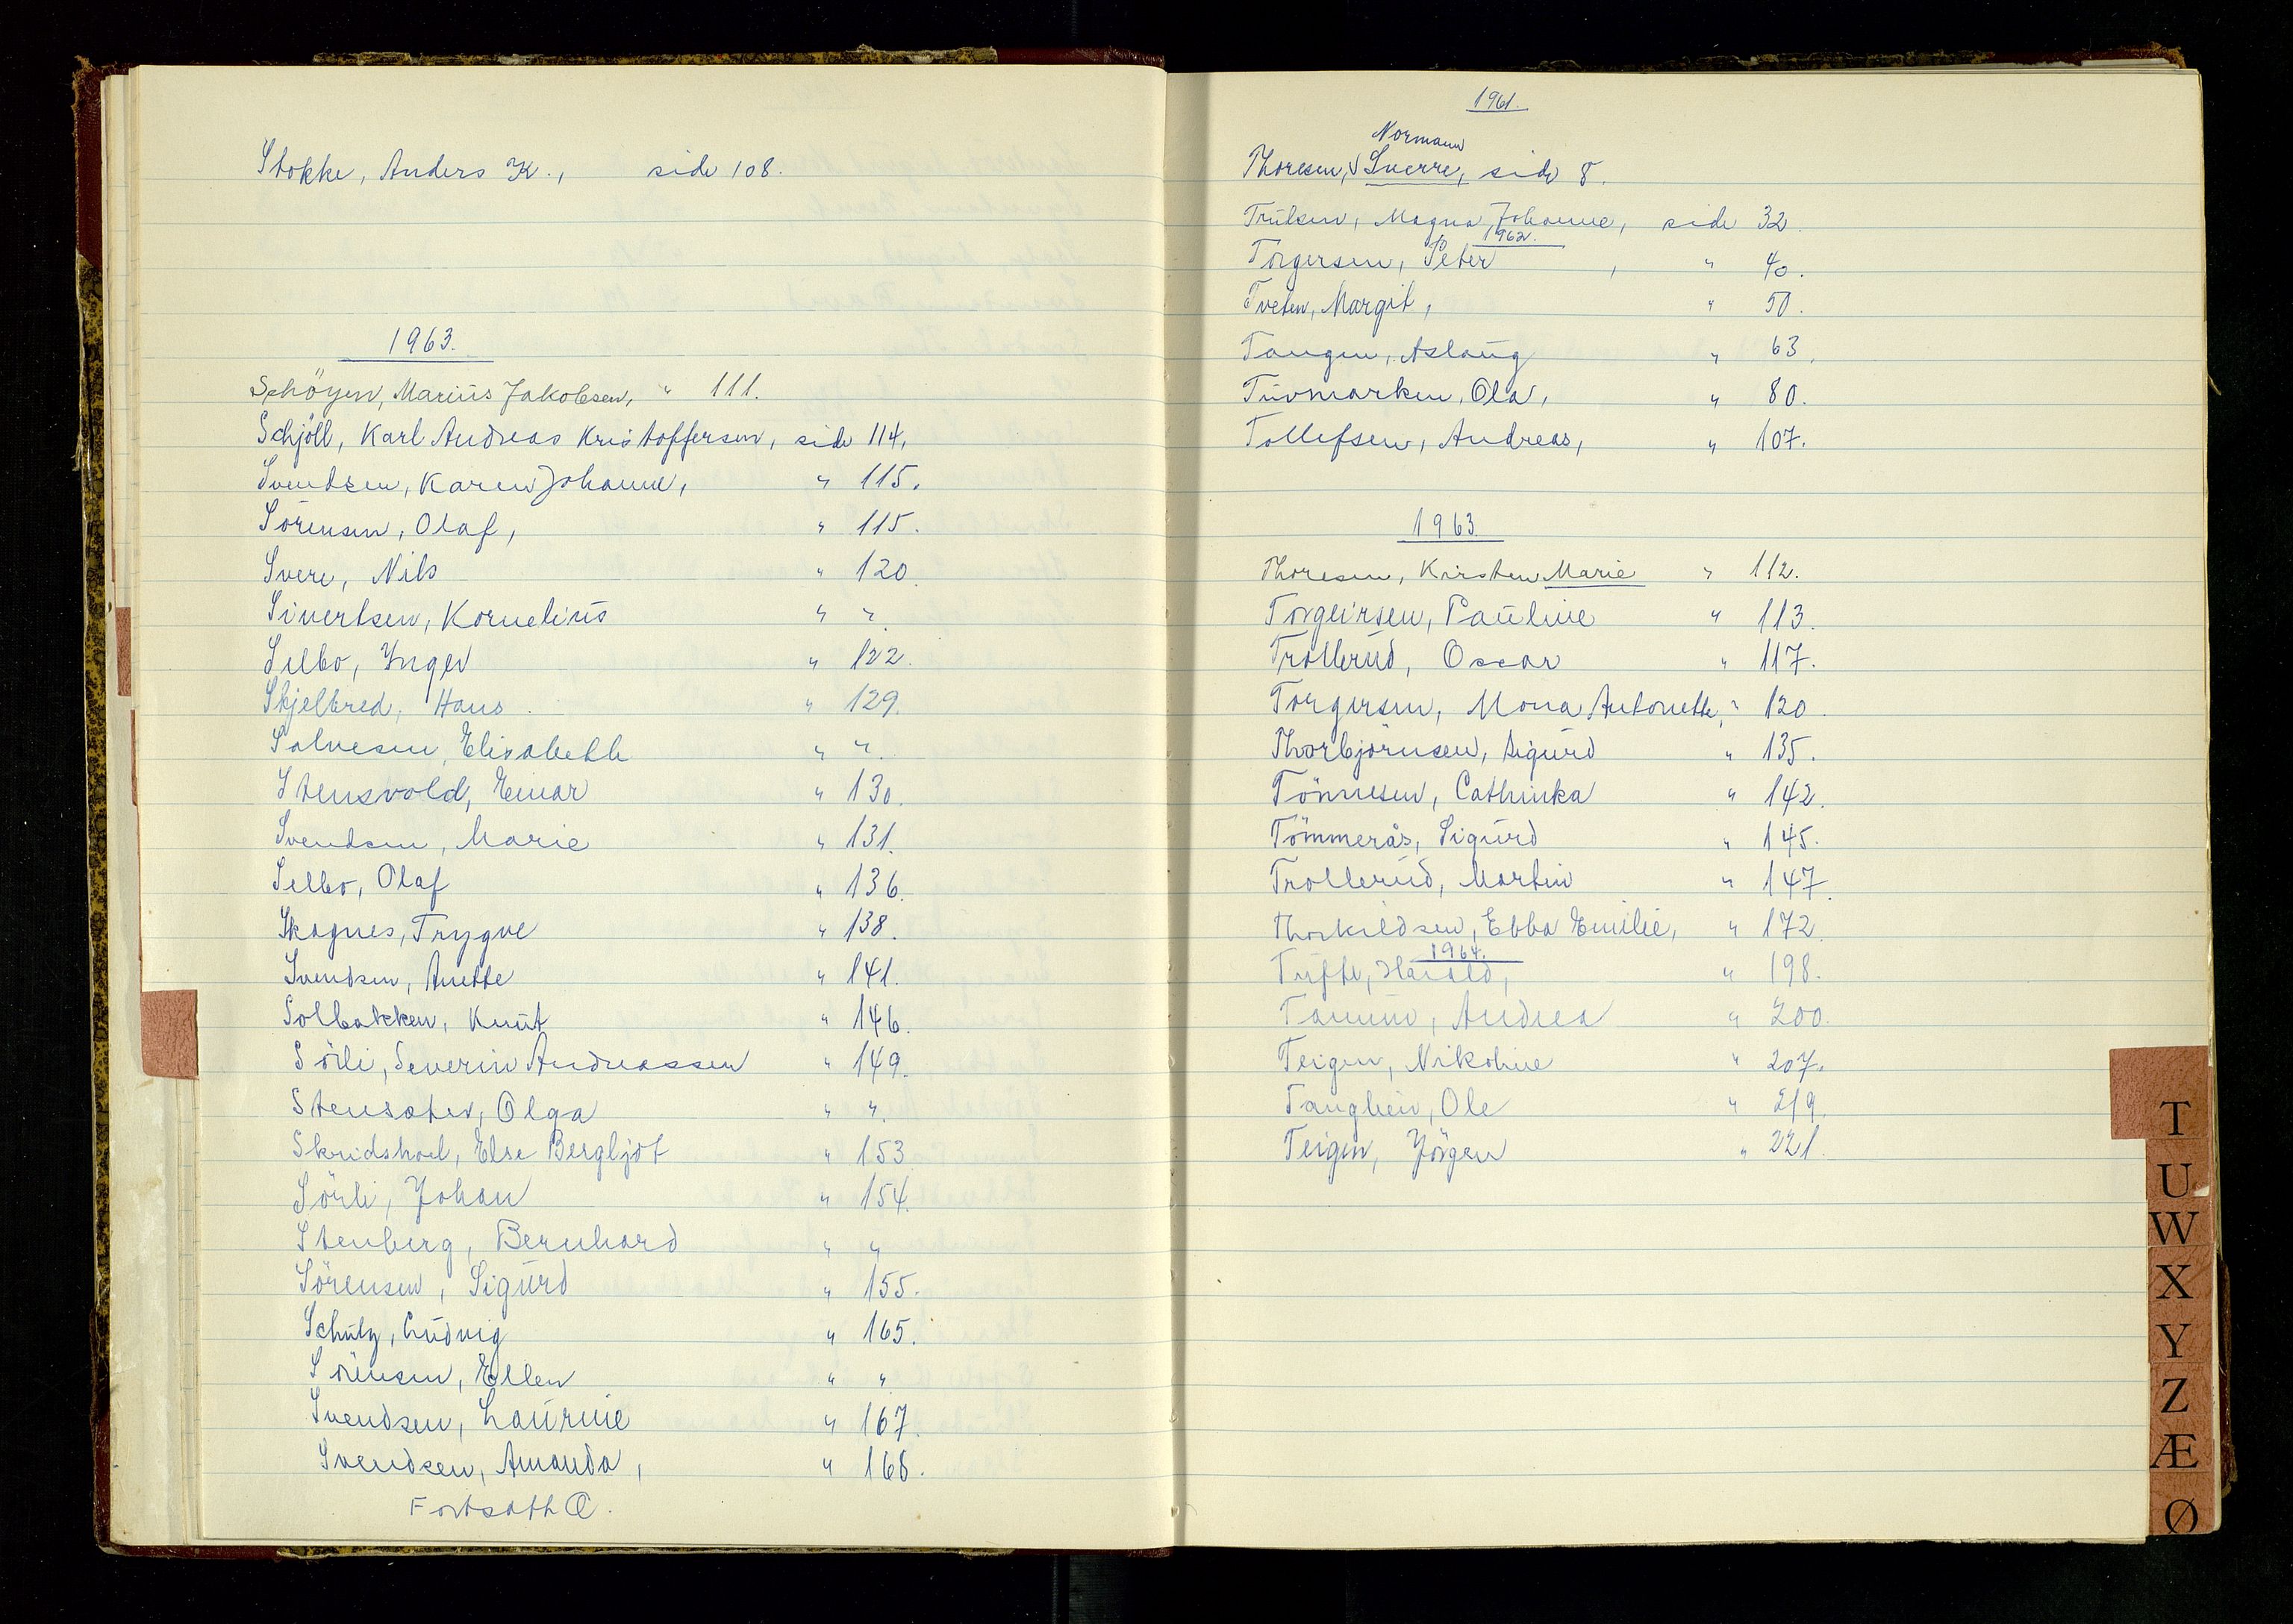 Stokke, Anders K., side 108.
1963.
Schöyen, Marius Jakobsen, " 111.
Schjöll, Karl Andreas Kristoffersen, side 114,
Svendsen, Karen Johanne, " 115.
Sörensen, Olaf, " 115.
Svere, Nils " 120.
Sivertsen, Kornelius " "
Selbo, Inger " 122.
Skjelbred, Hans. " 129.
Salvesen, Elisabeth " ".
Stensvold, Einar " 130.
Svendsen, Marie " 131.
Selbo, Olaf " 136.
Skagnes, Trygve " 138.
Svendsen, Anette " 141.
Solbakken, Knut " 146.
Sörli, Severin Andreassen " 149.
Stensæter, Olga " ".
Skridshol, Else Bergljot " 153
Sörli, Johan " 154.
Stenberg, Bernhard " "
Sörensen, Sigurd " 155.
Schulz, Ludvig " 165.
Sörensen, Ellen " "
Svendsen, Laurine " 167.
Svendsen, Amanda, " 168.
Fortsatt Q.
1961.
Normann
Thoresen, V Sverre, side 8.
Trulsen, Magna Johanne, side 32.
1962.
Torgersen, Peter, " 40.
Tveten, Margit, " 50.
Tangen, Aslaug " 63.
Tuvmarken, Ola, " 80.
Tollefsen, Andreas, " 107.
1963.
Thoresen, Kirsten Marie " 112.
Torgeirsen, Pauline " 113.
Trollerud, Oscar " 117.
Torgersen, Mona Antonette, " 120.
Thorbjörnsen, Sigurd " 135.
Tönnesen, Cathinka " 142.
Tömmerås, Sigurd " 145.
Trollerud, Martin " 147.
Thorkildsen, Ebba Emilie, " 172.
1964.
Tufte, Harald, " 198.
Tamum, Andrea " 200.
Teigen, Nikoline " 207.
Tanghein, Ole " 219.
Teigen, Jörgen " 221.
T
U
W
X
Y
Z
Æ
Ø